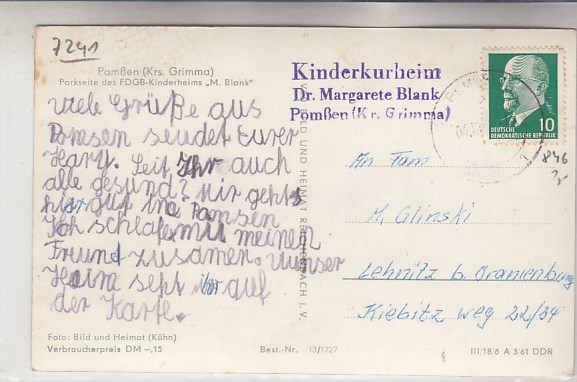 7241
Pomßen (Krs. Grimma)
Parkseite des FDGB-Kinderheims „M. Blank"
Kinderkurheim
Dr. Margarete Blank
Pomßen (Kr. Grimma)
10
DEUTSCHE
DEMOKRATISCHE REPUBLIK
viele Grüße aus
Pomsen sendet Eurer
Harry. Seit Ihr auch
alle gesund? Mir gehts
hier gut in Pomsen
Ich schlafe mit meinen
Freund zusamen. Unser
Heim seht ihr auf
der Karte.
BILD UND HEIMAT REICHENBACH i. V.
An Fam
M. Glinski
Lehnitz b. Oranienburg
Kiebitz weg 22/34
Foto: Bild und Heimat (Kühn)
Verbraucherpreis DM –,15
Best.-Nr. 13/1727
III/18/6 A 3/61 DDR